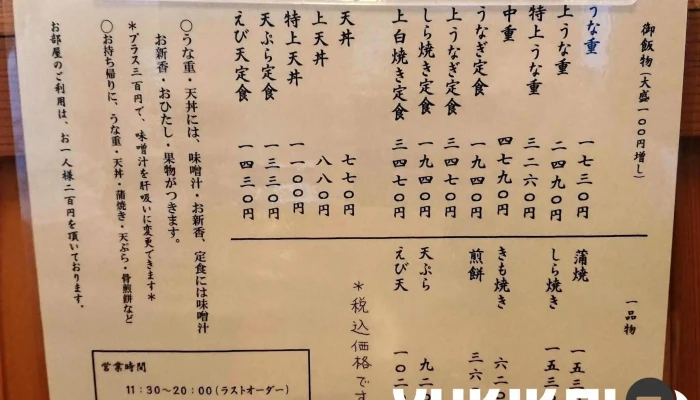 御飯物(大盛一〇〇円増し)
うな重 一七三〇円
上うな重 二四九〇円
特上うな重 三二六〇円
中重 四七九〇円
うなぎ定食 一九四〇円
上うなぎ定食 三四七〇円
しら焼き定食 一九四〇円
上白焼き定食 三四七〇円
天丼 七七〇円
上天丼 八八〇円
特上天丼 一一〇〇円
天ぷら定食 一三三〇円
えび天定食 一四三〇円
〇うな重・天丼には、味噌汁・お新香、定食には味噌汁
お新香・おひたし・果物がつきます。
*プラス三百円で、味噌汁を肝吸いに変更できます*
〇お持ち帰りに、うな重・天丼・蒲焼き・天ぷら・骨煎餅など
お部屋のご利用は、お一人様二百円を頂いております。
一品物
蒲焼 一五三
しら焼き 一五三
きも焼き 六二
煎餅 三六
天ぷら 九二
えび天 一〇二
*税込価格です
営業時間
11:30~20:00(ラストオーダー)